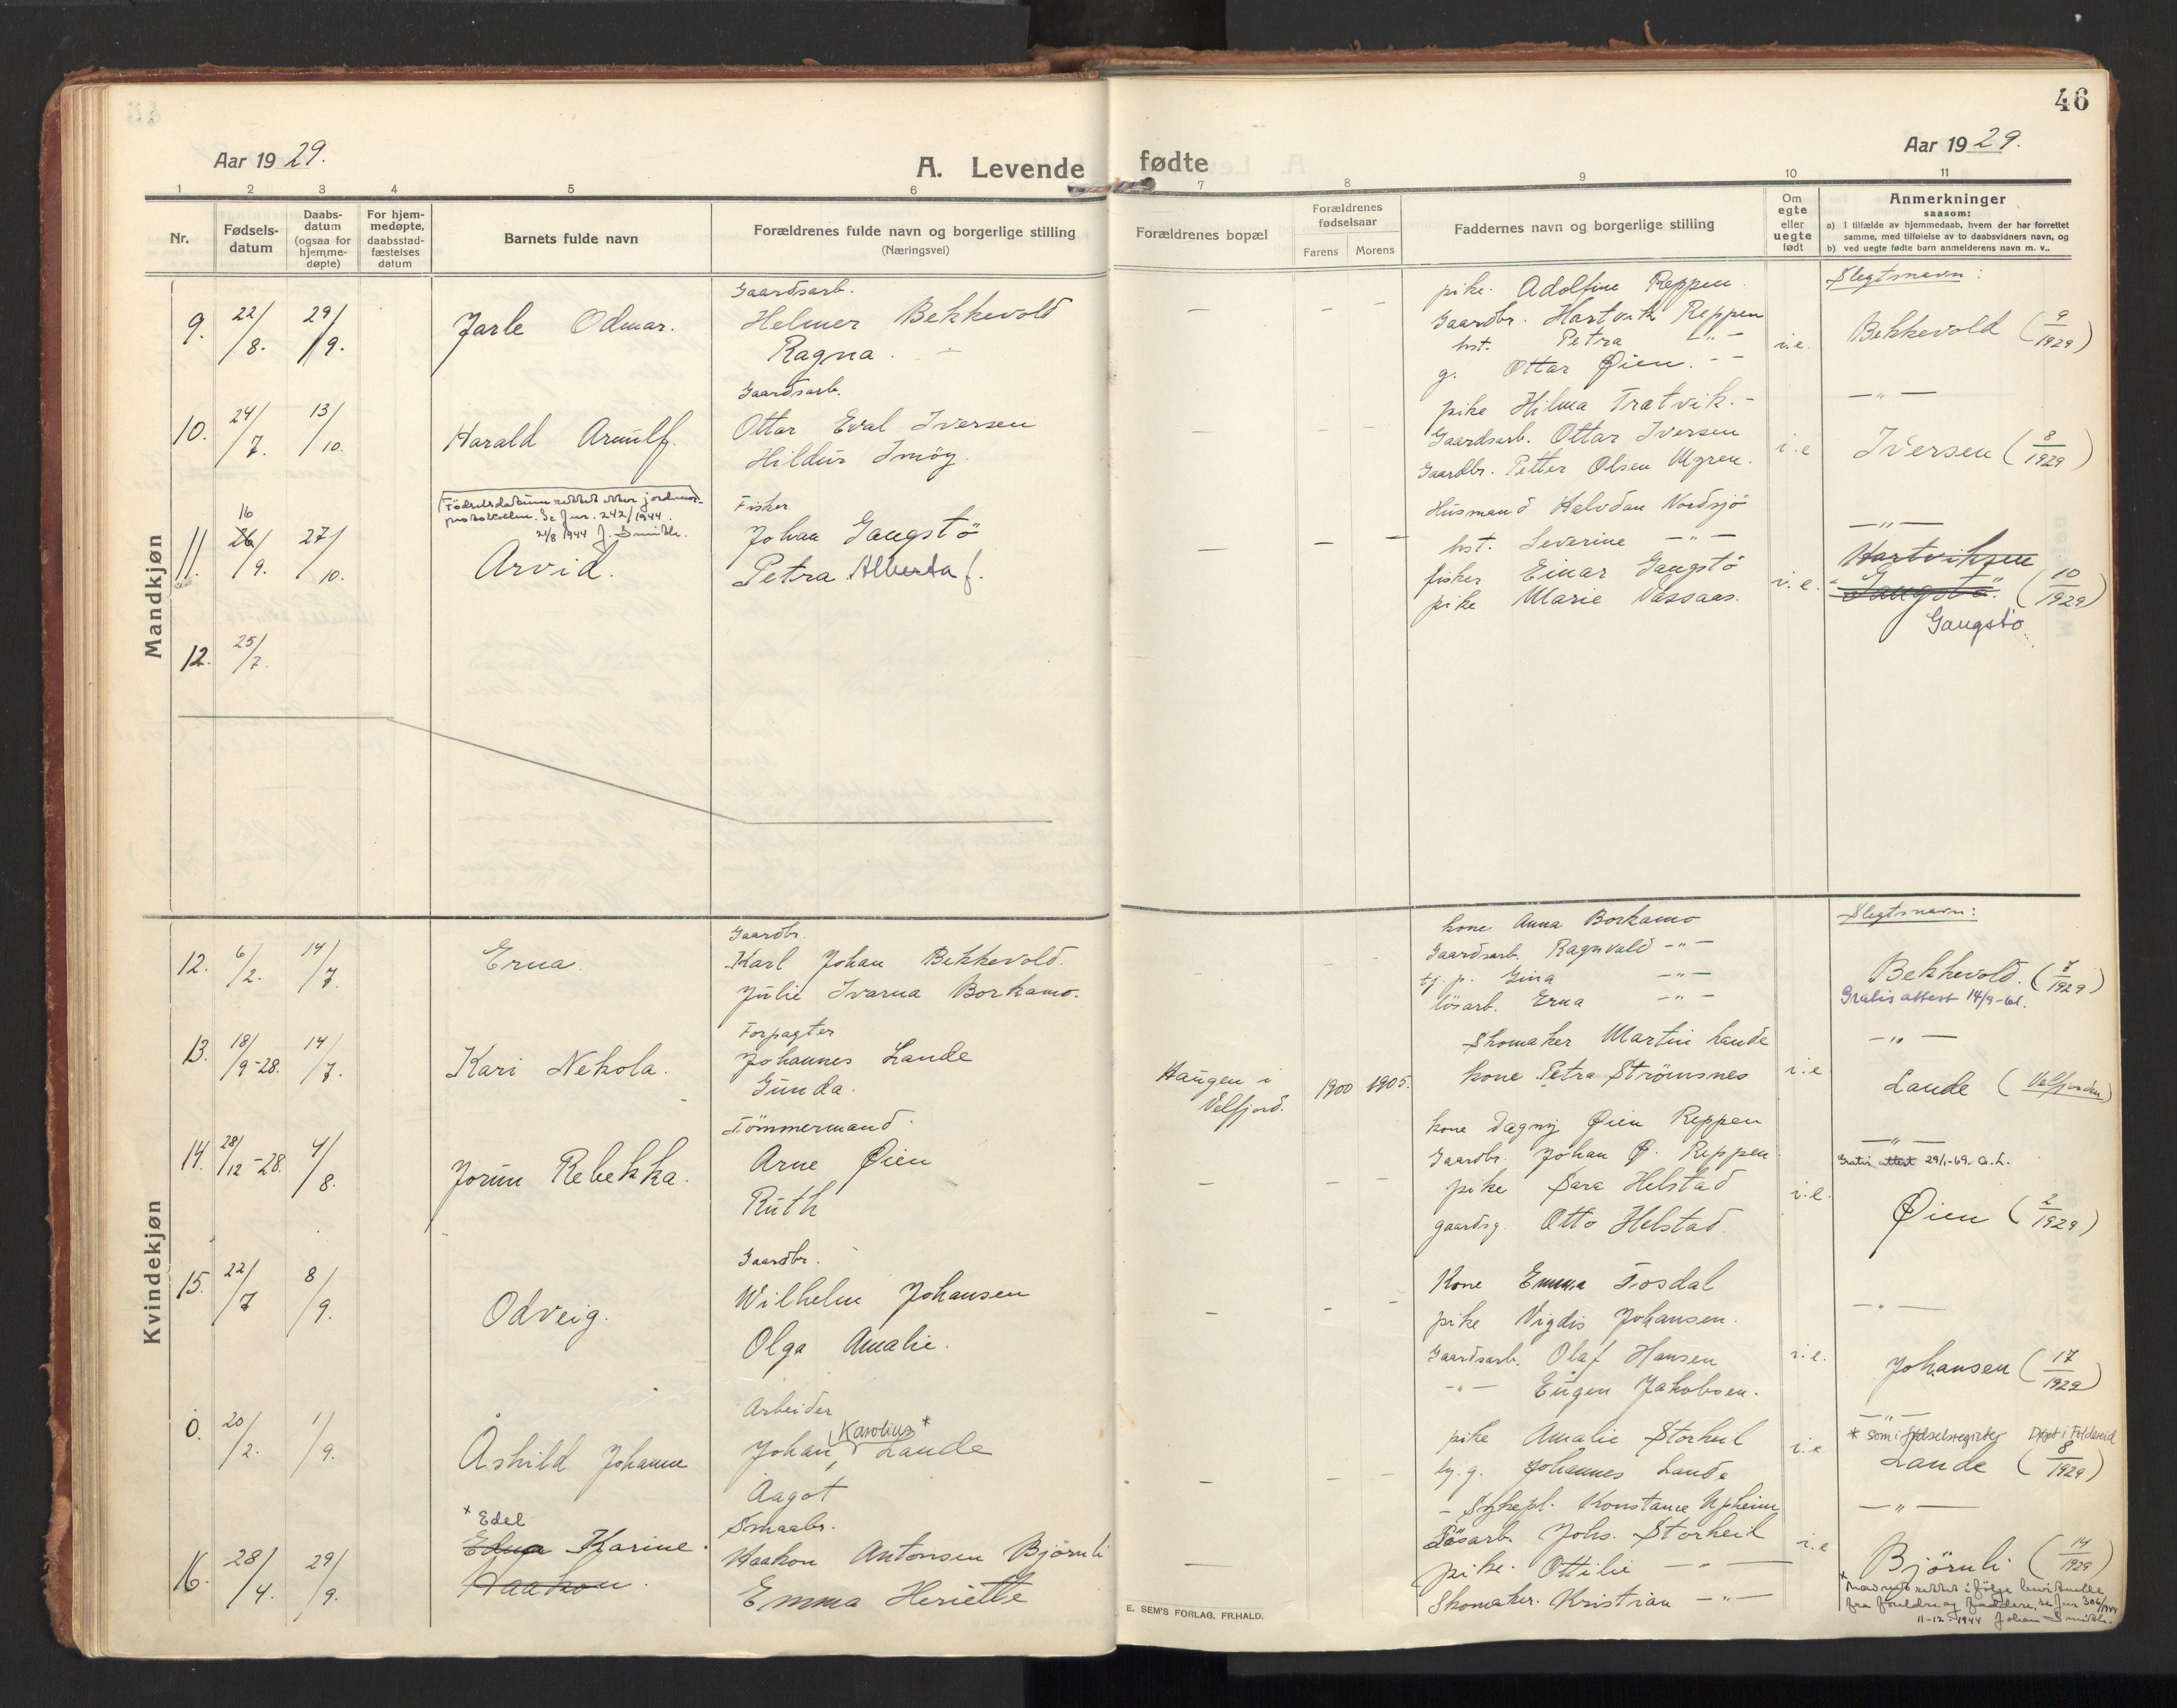 46
Aar 1929.
A. Levende fødte
Aar 1929.
1 2 3 4 5 6 7 8 9 10 11
Nr.
Fødsels-
datum
Daabs-
datum
(ogsaa for
hjemme-
døpte)
For hjem-
medøpte,
daabsstad-
fæstelses
datum
Barnets fulde navn
Forældrenes fulde navn og borgerlige stilling
(Næringsvei)
Forældrenes bopæl
Forældrenes
fødselsaar
Farens Morens
Faddernes navn og borgerlige stilling
Om
egte
eller
uegte
født
Anmerkninger
saasom:
a) I tilfælde av hjemmedaab, hvem der har forrettet
samme, med tilføielse av to daabsvidners navn, og
b) ved uegte fødte barn anmelderens navn m. v..
Mandkjøn
9. 22/8. 29/9.
Jarle Odmar.
Gaardsarb.
Helmer Bekkevold
Ragna. -
- - -
pike. Adolfine Reppen.
Gaardbr. Hartvik Reppen
hst. Petra -"-
g. Ottar Øien. --
i.e.
Slegtsnavn:
Bekkevold (9/1929)
10. 24/7. 13/10.
Harald Arnulf.
Gaardsarb.
Ottar Eval Iversen
Hildur Imøy.
- - -
pike Hilma Tratvik. -
Gaardsarb. Ottar Iversen
Gaardbr. Petter Olsen Mgren.
i.e
-"-
Iversen (8/1929)
11. 16 26/9. 27/10.
Fødselsdatum rettet etter jordmor-
protokollen. Se Jnr. 242/1944.
21/8 1944 J. Smith.
Arvid.
Fisker
Johan Gangstö
Petra Alberta f.
- - -
Husmand Halvdan Nordsjö
hst. Severine -"-
fisker Einar Gangstö
pike Marie Vassaas.
i.e.
-"-
Hartviksen
Gangstö. (10/1929)
Gangstö.
12. 25/7.
Kvindekjøn
12. 6/2. 14/7.
Erna.
Gaardbr.
Karl Johan Bekkevold.
Julie Ivarna Borkamo.
kone Anna Borkamo
Gaardsarb. Ragnvald -"-
tj. p. Gina -"-
lösarb. Erna -"-
Slegtsnavn:
Bekkevold. (7/1929)
Gratis attest 14/9-61.
13. 18/9-28. 14/7.
Kari Nekola.
Forpagter
Johannes Lande
Gunda.
Haugen i
Velfjord.
1900 1905.
Skomaker Martin Lande
kone Petra Strömsnes
i.e
-"-
Lande (Velfjorden)
14. 28/12-28. 4/8.
Jorun Rebekka.
Tömmermand.
Arne Øien
Ruth
- - -
kone Dagny Øien Reppen
Gaardbr. Johan Ø. Reppen
pike Sara Helstad
gaardsg. Otto Helstad.
i.e.
-"-
Gratis attest 29/1-69. A.L.
Øien (2/1929)
15. 22/7 8/9.
Odveig.
Gaardbr.
Wilhelm Johansen
Olga Amalie.
- - -
Kone Emma Fosdal
pike Vigdis Johansen.
Gaardsarb. Olaf Hansen
-"- Eugen Jakobsen.
i.e.
-"-
Johansen (17/1929)
0. 20/2. 1/9.
Åshild Johanne
Arbeider
Johan, Karolius* Lande
Aagot
- - -
pike Amalie Storheil
ty. g. Johannes Lande
- Sykepl. Konstance Upheim
i.e
-"-
* som i fødselsregister Døpt i Foldereid
Lande (8/1929)
16. 28/4. 29/9.
* Edel
Edna Karine.
Haakon.
Smaabr.
Haakon Antonsen Björnli
Emma Heriette
-
Lösarb. Johs. Storheil
pike. Ottilie -"-
Skomaker. Kristian -"-
i.e
-"-
Björnli (14/1929)
* Navnet rettet i følge bevidnelse
fra foreldre og faddere, se Jnr 306/1944
11-12-1944 Johan Smith.
E. SEM'S FORLAG, FR.HALD.